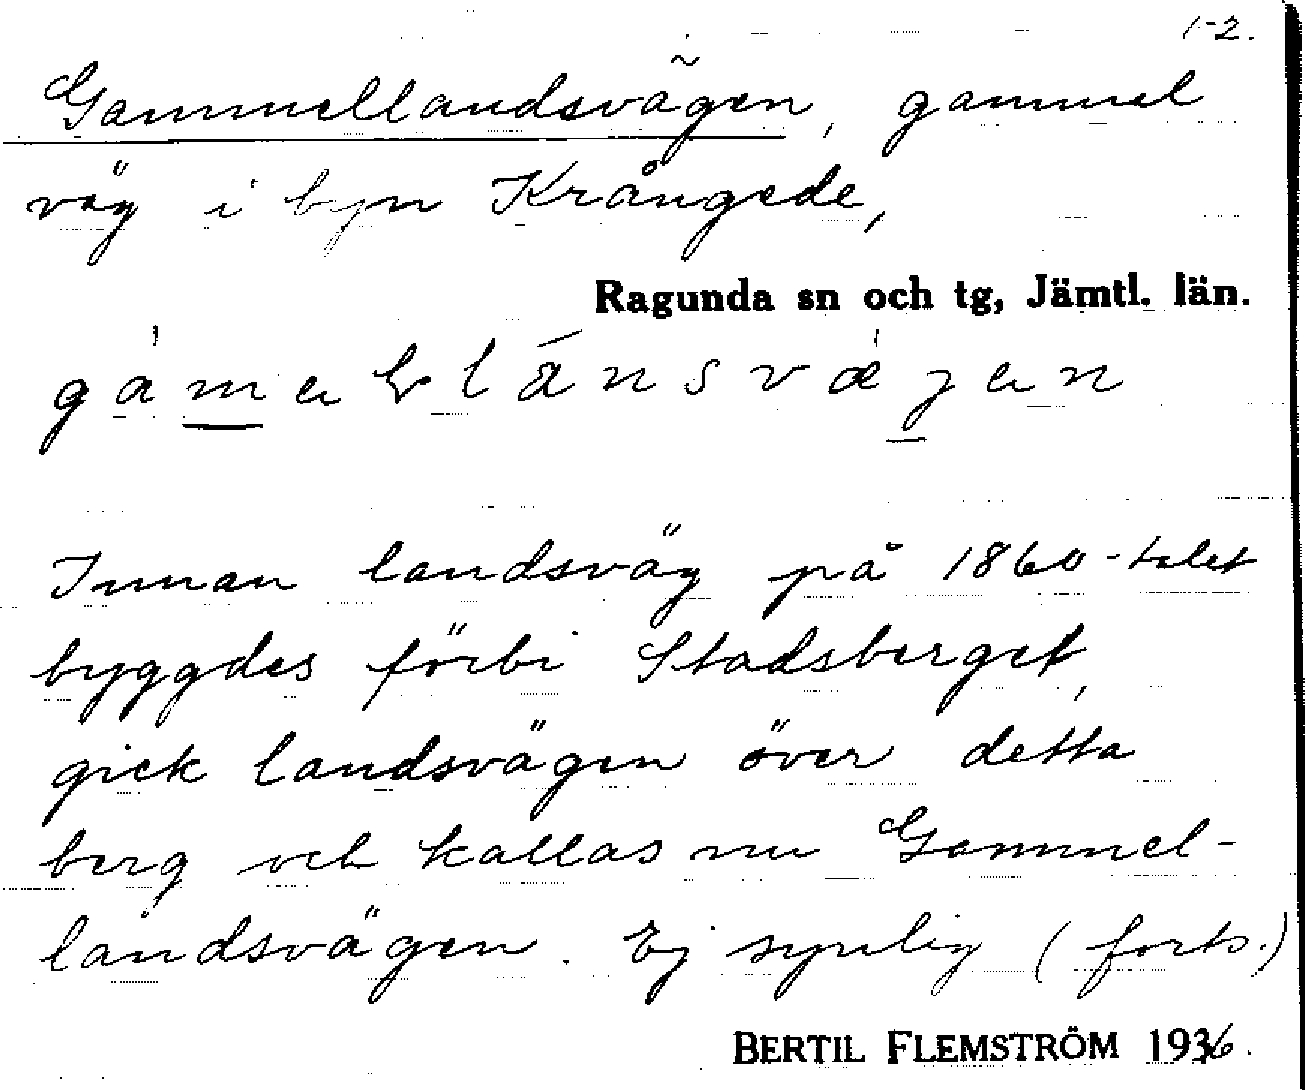 1-2.
Gammellandsvägen, gammel
väg i byn Krångede,
Ragunda sn och tg, Jämtl. län.
Innan landsväg på 1860-talet
byggdes förbi Stadsberget,
gick landsvägen över detta
berg och kallas nu Gammel-
landsvägen. Ej synlig (forts.)
BERTIL FLEMSTRÖM 1936.